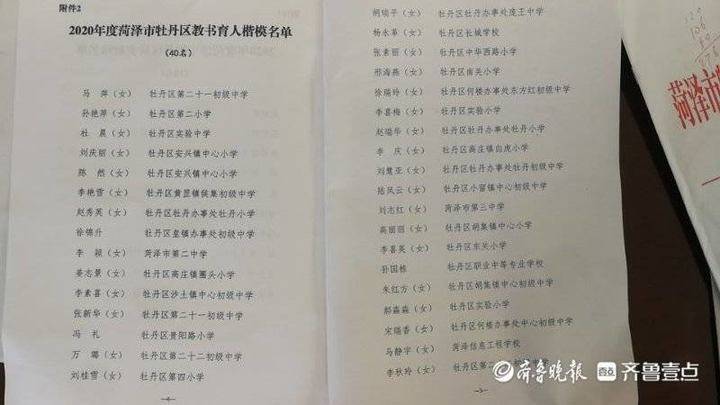 附件2
2020年度菏泽市牡丹区教书育人楷模名单
（40名）
马 萍（女） 牡丹区第二十一初级中学
孙艳萍（女） 牡丹区第二小学
杜 晨（女） 牡丹区实验中学
刘庆丽（女） 牡丹区安兴镇中心小学
陈 然（女） 牡丹区安兴镇中心小学
李艳雪（女） 牡丹区黄堽镇侯集初级中学
赵秀英（女） 牡丹区牡丹办事处牡丹小学
徐锦升 牡丹区皇镇办事处初级中学
李 颖（女） 菏泽市第二中学
姜志景（女） 牡丹区高庄镇圈头小学
李素喜（女） 牡丹区沙土镇中心初级中学
张新华（女） 牡丹区第二十一初级中学
冯 礼 牡丹区贵阳路小学
万 璐（女） 牡丹区第二十二初级中学
刘桂雪（女） 牡丹区第四小学
胡瑞平（女） 牡丹区牡丹办事处庞王中学
杨永革（女） 牡丹区长城学校
张素丽（女） 牡丹区中华西路小学
邢海燕（女） 牡丹区南关小学
徐瑞玲（女） 牡丹区何楼办事处东方红初级中学
李喜梅（女） 牡丹区实验小学
赵瑞华（女） 牡丹区牡丹办事处牡丹小学
李 庆（女） 牡丹区高庄镇白虎小学
刘慧亚（女） 牡丹区牡丹办事处牡丹初级中学
陆凤云（女） 牡丹区小留镇中心初级中学
刘志红（女） 菏泽市第三中学
高丽丽（女） 牡丹区胡集镇中心小学
李喜英（女） 牡丹区东关小学
孙国栋 牡丹区职业中等专业学校
朱红方（女） 牡丹区胡集镇中心初级中学
郝淼淼（女） 牡丹区实验小学
宋瑞香（女） 牡丹区何楼办事处中心初级中学
马静宇（女） 菏泽信息工程学校
李秋玲（女） 牡丹区第二
菏泽市
齐鲁晚报 齐鲁壹点